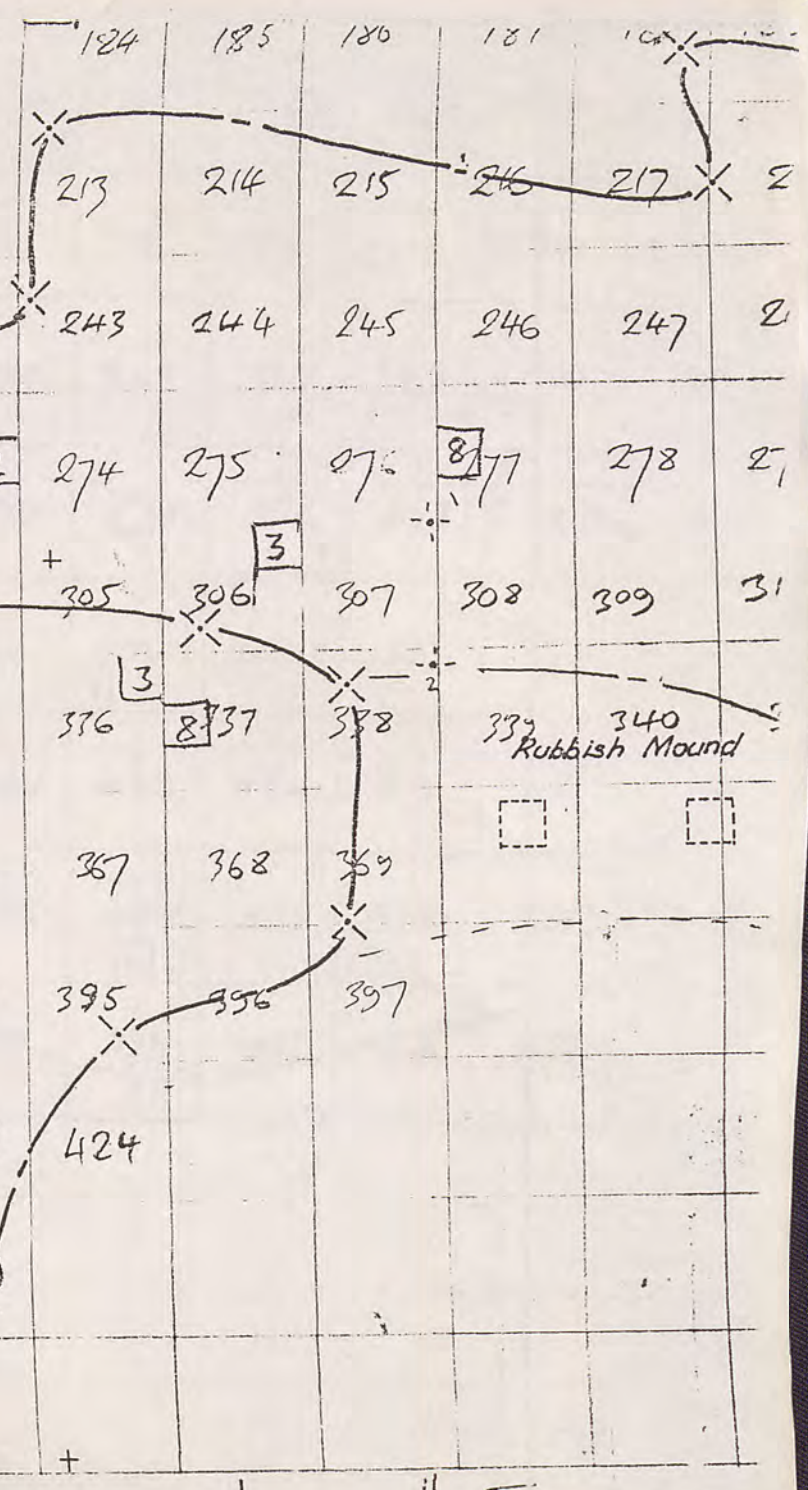 184 185 186
213 214 215 216 217
243 244 245 246 247
274 275 276 8 277 278
3
305 306 307 308 309
3
2
336 8 337 338 339 340
Rubbish Mound
367 368 369
395 396 397
424